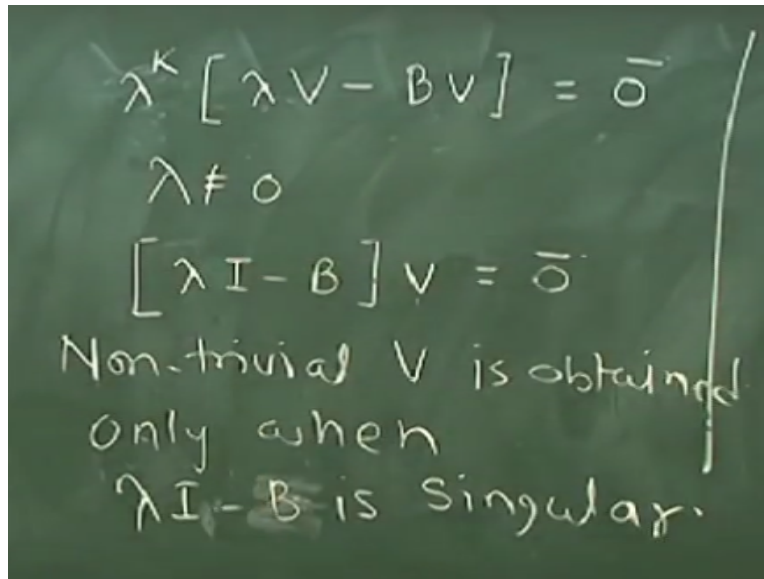 λᴷ [λV - BV] = 0̄
λ ≠ 0
[λI - B]V = 0̄
Non-trivial V is obtained
only when
λI - B is Singular.